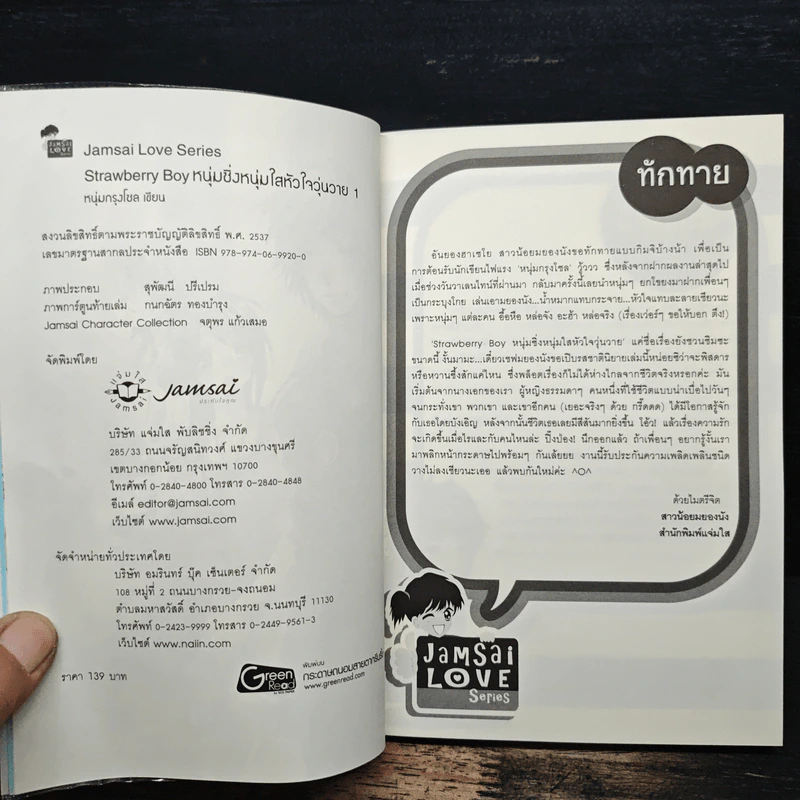 JAMSAI
LOVE
Series
Jamsai Love Series
Strawberry Boy หนุ่มซิ่งหนุ่มใสหัวใจวุ่นวาย 1
หนุ่มกรุงโซล เขียน
สงวนลิขสิทธิ์ตามพระราชบัญญัติลิขสิทธิ์ พ.ศ. 2537
เลขมาตรฐานสากลประจำหนังสือ ISBN 978-974-06-9920-0
ภาพประกอบ สุพัฒนี ปรีเปรม
ภาพการ์ตูนท้ายเล่ม กนกฉัตร ทองบำรุง
Jamsai Character Collection จตุพร แก้วเสมอ
จัดพิมพ์โดย
แจ่มใส
Jamsai
Jamsai
บริษัท แจ่มใส พับลิชชิ่ง จำกัด
285/33 ถนนจรัญสนิทวงศ์ แขวงบางขุนศรี
เขตบางกอกน้อย กรุงเทพฯ 10700
โทรศัพท์ 0-2840-4800 โทรสาร 0-2840-4848
อีเมล์ editor@jamsai.com
เว็บไซต์ www.jamsai.com
จัดจำหน่ายทั่วประเทศโดย
บริษัท อมรินทร์ บุ๊ค เซ็นเตอร์ จำกัด
108 หมู่ที่ 2 ถนนบางกรวย-จงถนอม
ตำบลมหาสวัสดิ์ อำเภอบางกรวย จ.นนทบุรี 11130
โทรศัพท์ 0-2423-9999 โทรสาร 0-2449-9561-3
เว็บไซต์ www.naiin.com
ราคา 139 บาท
Green
Read
พิมพ์บน
กระดาษถนอมสายตากรีนรี้ด
www.greenread.com
ทักทาย
อันยองฮาเซโย สาวน้อยมยองนังขอทักทายแบบกิมจิบ้างน้า เพื่อเป็น
การต้อนรับนักเขียนไฟแรง 'หนุ่มกรุงโซล' วู้ววว ซึ่งหลังจากฝากผลงานล่าสุดไป
เมื่อช่วงวันวาเลนไทน์ที่ผ่านมา กลับมาครั้งนี้เลยนำหนุ่มๆ ยกโขยงมาฝากเพื่อนๆ
เป็นกระบุงโกย เล่นเอามยองนัง...น้ำหมากแทบกระจาย...หัวใจแทบละลายเชียวนะ
เพราะหนุ่มๆ แต่ละคน อื้อหือ หล่อจัง อะฮ้า หล่อจริง (เรื่องเว่อร์ๆ ขอให้บอก ตึ่ง!)
'Strawberry Boy หนุ่มซิ่งหนุ่มใสหัวใจวุ่นวาย' แค่ชื่อเรื่องยังชวนชิมซะ
ขนาดนี้ งั้นมามะ...เดี๋ยวเชฟมยองนังขอเป็บรสชาตินิยายเล่มนี้หน่อยซิว่าจะพิสดาร
หรือหวานซึ้งสักแค่ไหน ซึ่งพล็อตเรื่องก็ไม่ได้ห่างไกลจากชีวิตจริงหรอกค่ะ มัน
เริ่มต้นจากนางเอกของเรา ผู้หญิงธรรมดาๆ คนหนึ่งที่ใช้ชีวิตแบบน่าเบื่อไปวันๆ
จนกระทั่งเขา พวกเขา และเขาอีกคน (เยอะจริงๆ ด้วย กรี๊ดดด) ได้มีโอกาสรู้จัก
กับเธอโดยบังเอิญ หลังจากนั้นชีวิตเธอเลยมีสีสันมากยิ่งขึ้น โอ้ว! แล้วเรื่องความรัก
จะเกิดขึ้นเมื่อไรและกับคนไหนล่ะ ปิ๊งป่อง! นึกออกแล้ว ถ้าเพื่อนๆ อยากรู้งั้นเรา
มาพลิกหน้ากระดาษไปพร้อมๆ กันเล้ยยย งานนี้รับประกันความเพลิดเพลินชนิด
วางไม่ลงเชียวนะเออ แล้วพบกันใหม่ค่ะ ^O^
ด้วยไมตรีจิต
สาวน้อยมยองนัง
สำนักพิมพ์แจ่มใส
JAMSAI
LOVE
Series